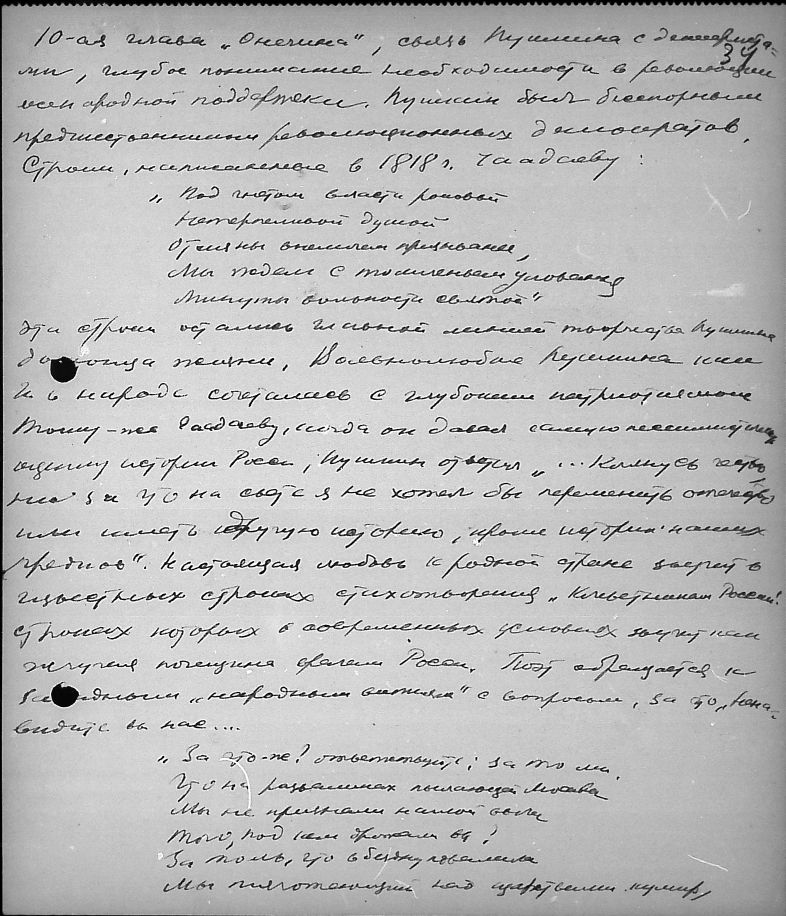 10-ая глава „Онегина“, связь Пушкина с декабриста-
34
ми, глубое понимание необходимости в революции
всенародной поддержки. Пушкин был бесспорным
предшественником революционных демократов.
Строки, написанные в 1818 г. Чаадаеву:
„Под гнетом власти роковой
Нетерпеливой душой
Отчизны внемлем призыванье,
Мы ждем с томленьем упованья
Минуты вольности святой“
Эти строки остались главной линией творчества Пушкина
до конца жизни. Вольнолюбие Пушкина как
и у народа сочеталось с глубоким патриотизмом
Тому-же Чаадаеву, когда он давал самую пессимистичную
оценку истории Росси, Пушкин ответил „... Клянусь честью
ни за что на свете я не хотел бы переменить отечество
или иметь другую историю, кроме истории наших
предков“. Настоящая любовь к родной стране звучит в
известных строках стихотворения „Клеветникам России“.
строках которых в современных условиях звучит как
жгучая пощечина врагам Росси. Поэт обращается к
западным „народным витиям“ с вопросом, за что „нена-
видите вы нас...
„За что-же? ответствуйте; за то ли,
Что на развалинах пылающей Москвы
Мы не признали наглой воли
Того, под кем дрожали вы?
За то ль, что в бездну повалили
Мы тяготеющий над царствами кумир,